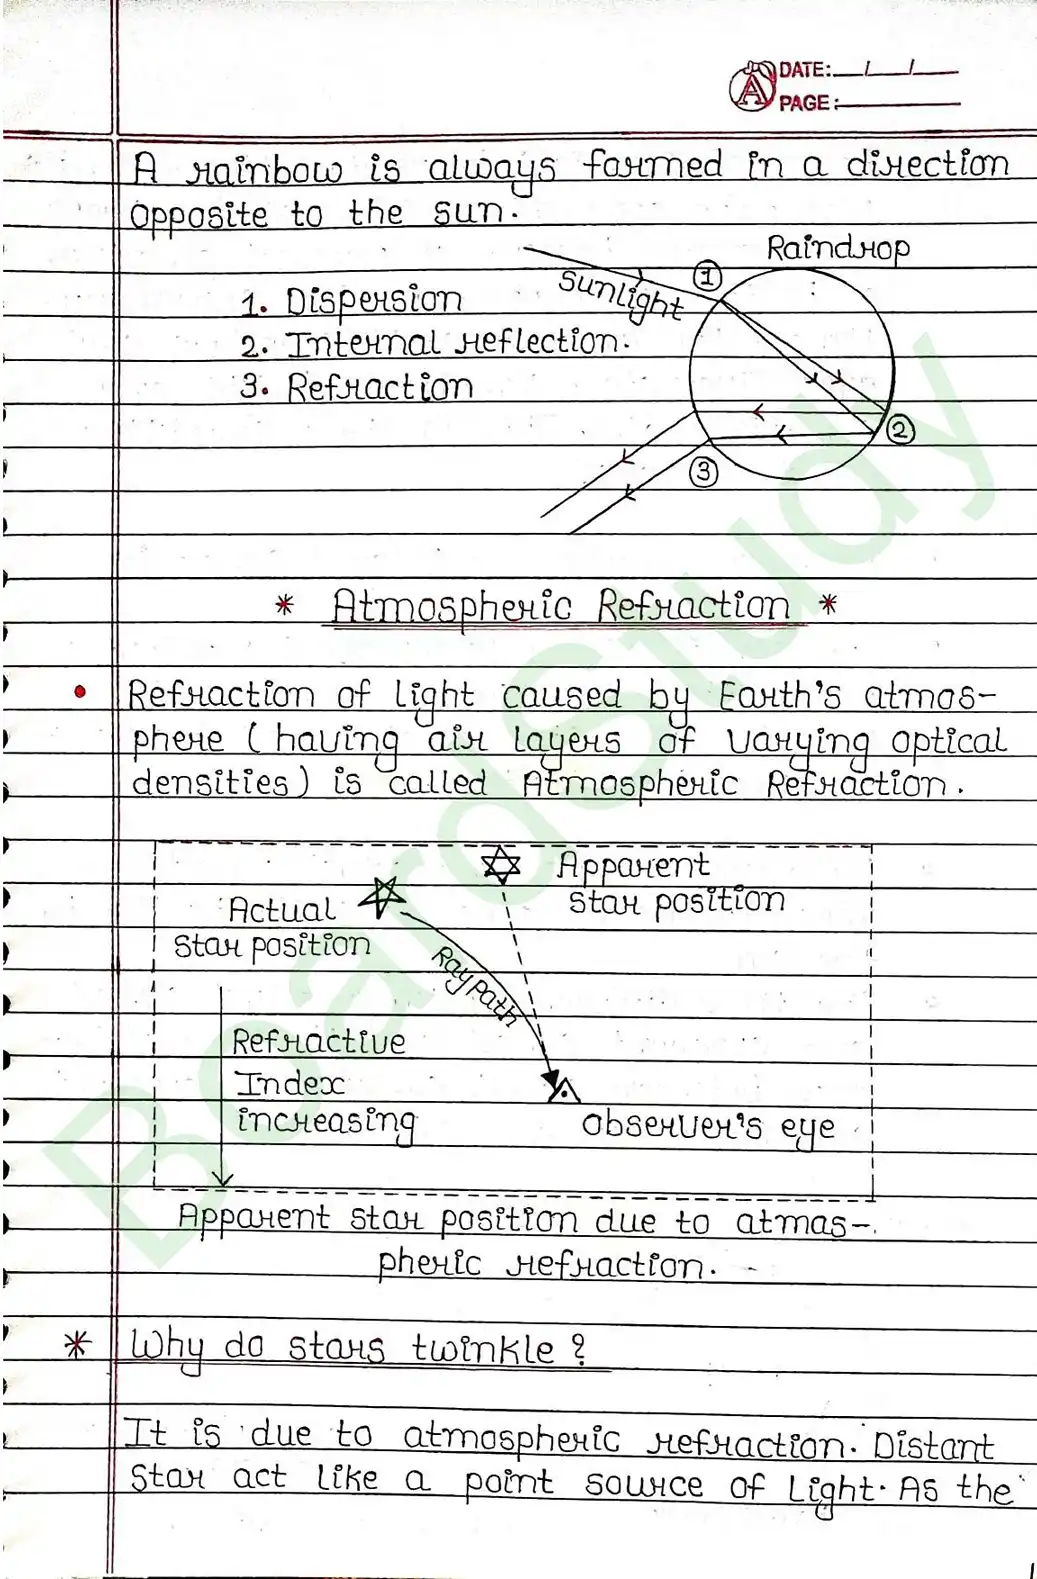 DATE: / /
PAGE:
A rainbow is always formed in a direction
opposite to the sun.
Raindrop
Sunlight
1
1. Dispersion
2. Internal reflection.
3. Refraction
2
3
* Atmospheric Refraction *
• Refraction of light caused by Earth's atmos-
phere (having air layers of varying optical
densities) is called Atmospheric Refraction.
Apparent
star position
Actual
star position
Ray path
Refractive
Index
increasing
observer's eye
Apparent star position due to atmos-
pheric refraction.
* Why do stars twinkle?
It is due to atmospheric refraction. Distant
star act like a point source of light. As the
BoardStudy